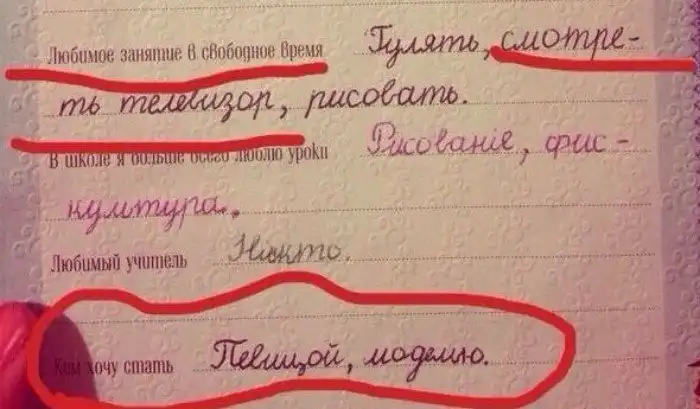 Любимое занятие в свободное время Гулять, смотре-
ть телевизор, рисовать.
В школе я больше всего люблю уроки Рисование, физ-
культура.
Любимый учитель Никто.
Кем хочу стать Певицой, моделю.